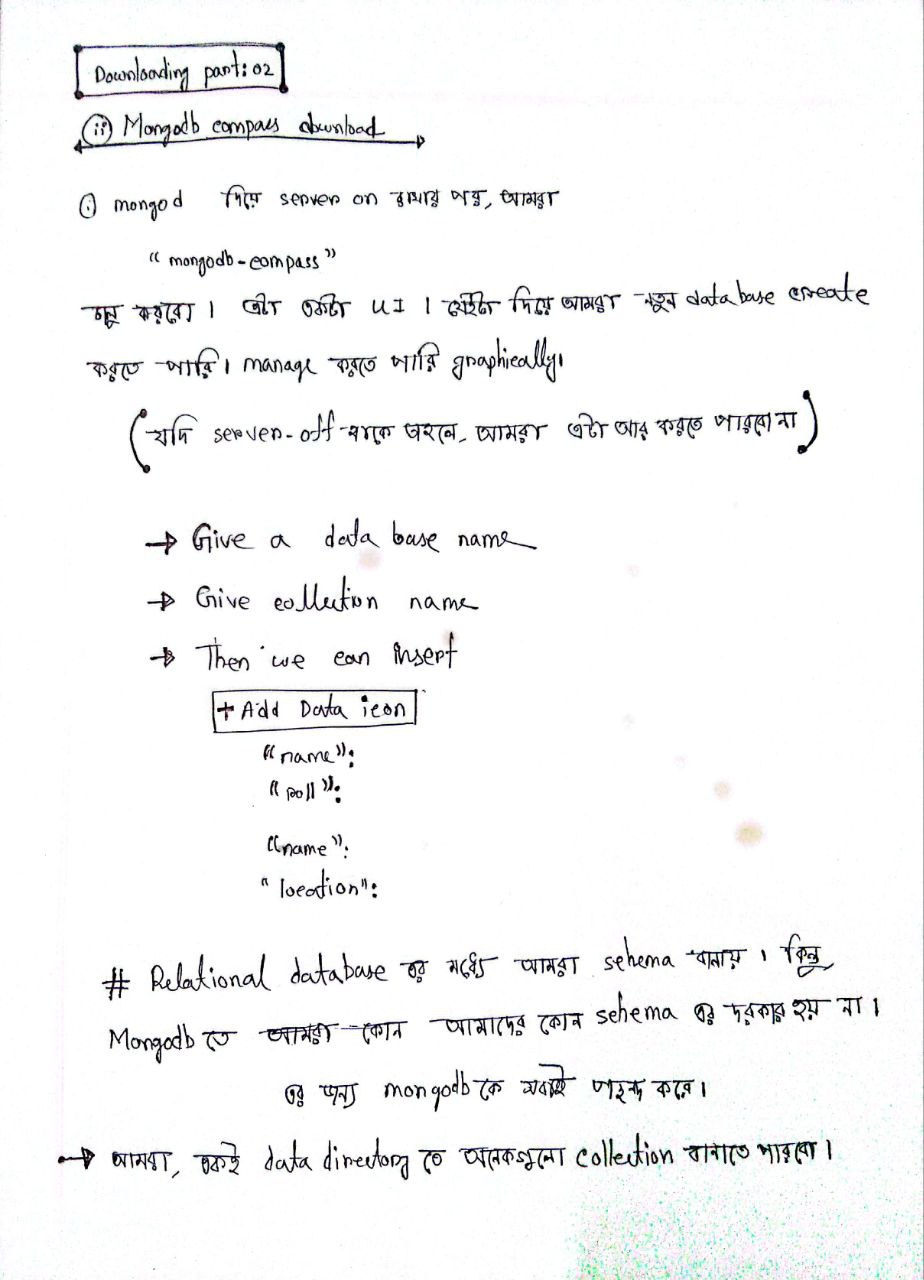 Downloading part: 02
(ii) Mongodb compass download
(i) mongod দিয়ে server on রাখার পর, আমরা
"mongodb-compass"
চালু করবো। এটা একটা UI। যেইটা দিয়ে আমরা নতুন database create
করতে পারি। manage করতে পারি graphically।
(যদি server-off থাকে তাহলে, আমরা এটা আর করতে পারবো না)
→ Give a data base name
→ Give collection name
→ Then we can insert
+ Add Data icon
"name":
"roll":
"name":
"location":
# Relational database এর মধ্যে আমরা schema বানায়। কিন্তু
Mongodb তে আমরা কোন আমাদের কোন schema এর দরকার হয় না।
এর জন্য mongodb কে সবাই পছন্দ করে।
→ আমরা, একই data directory তে অনেকগুলো collection বানাতে পারবো।